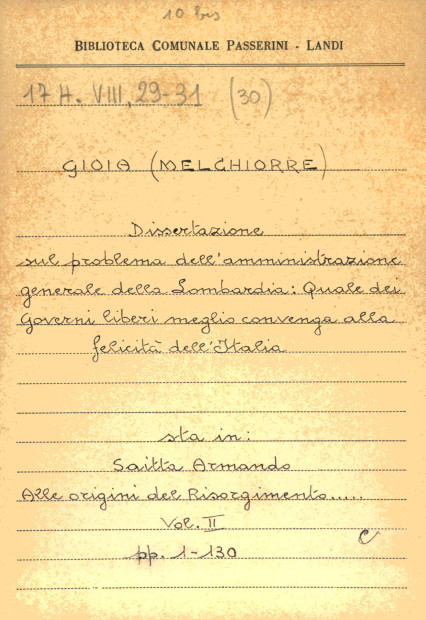 10 bis
BIBLIOTECA COMUNALE PASSERINI - LANDI
17 H. VIII, 29-31 (30)
GIOIA (MELCHIORRE)
Dissertazione
sul problema dell'amministrazione
generale della Lombardia: Quale dei
Governi liberi meglio convenga alla
felicità dell'Italia
sta in:
Saitta Armando
Alle origini del Risorgimento.....
Vol. II
pp. 1-130
C